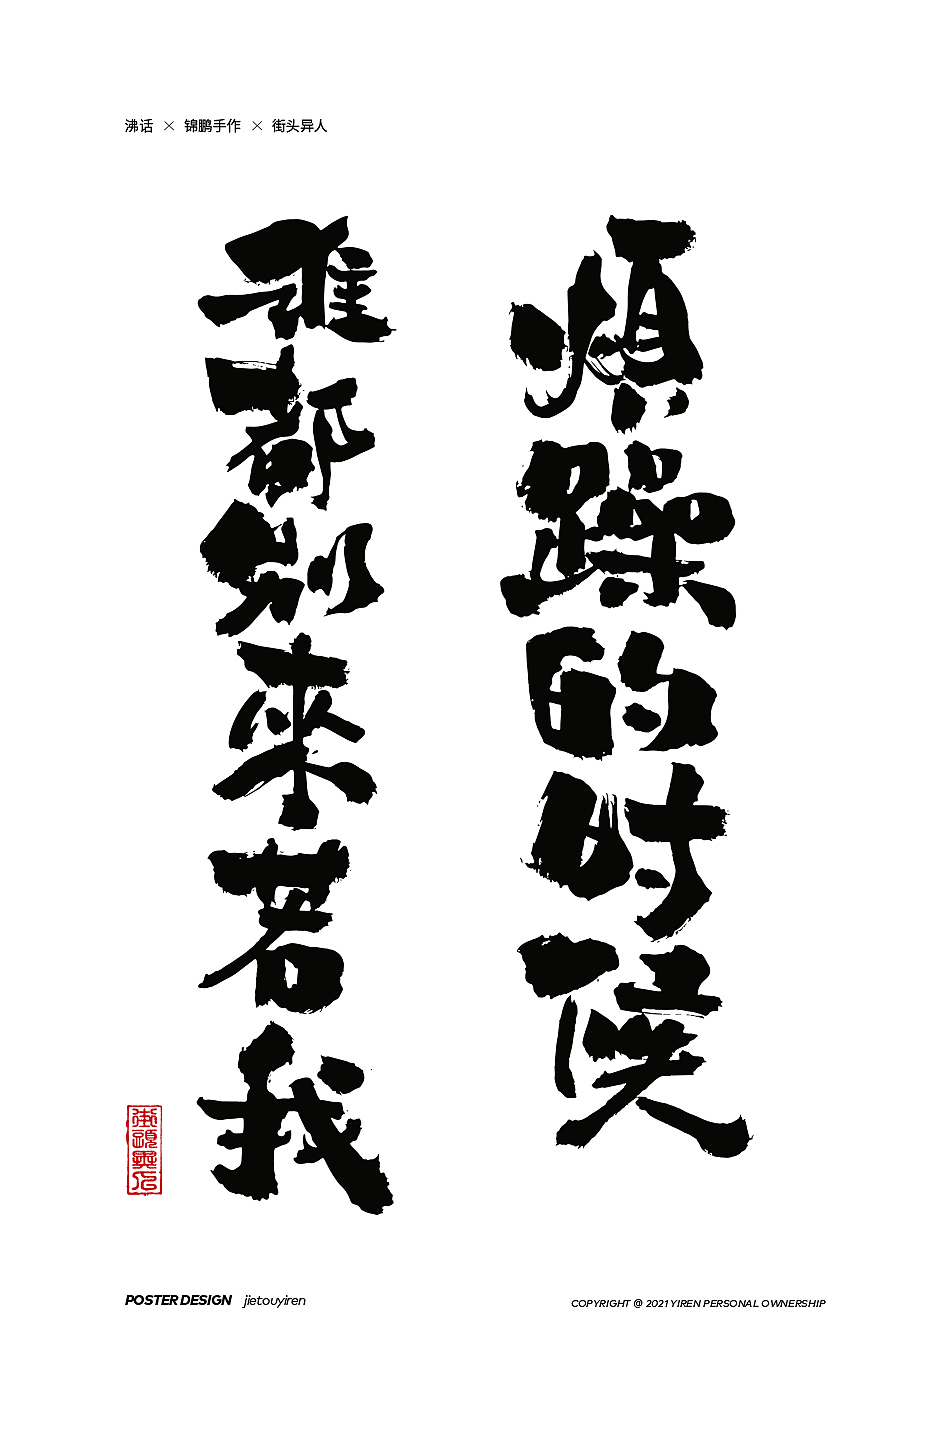 沸话 × 锦鹏手作 × 街头异人
煩躁的时候
谁都别來若我
街頭異人
POSTER DESIGN jietouyiren
COPYRIGHT @ 2021 YIREN PERSONAL OWNERSHIP